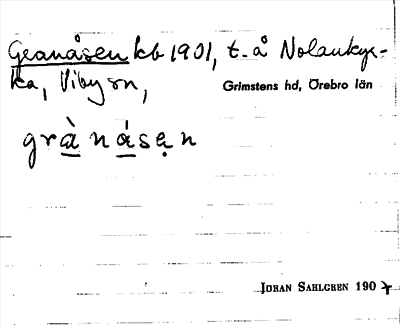 Granåsen kb 1901, t. å Nolankyr-
ka, Viby sn,
Grimstens hd, Örebro län
grànásẹn
JÖRAN SAHLGREN 1907